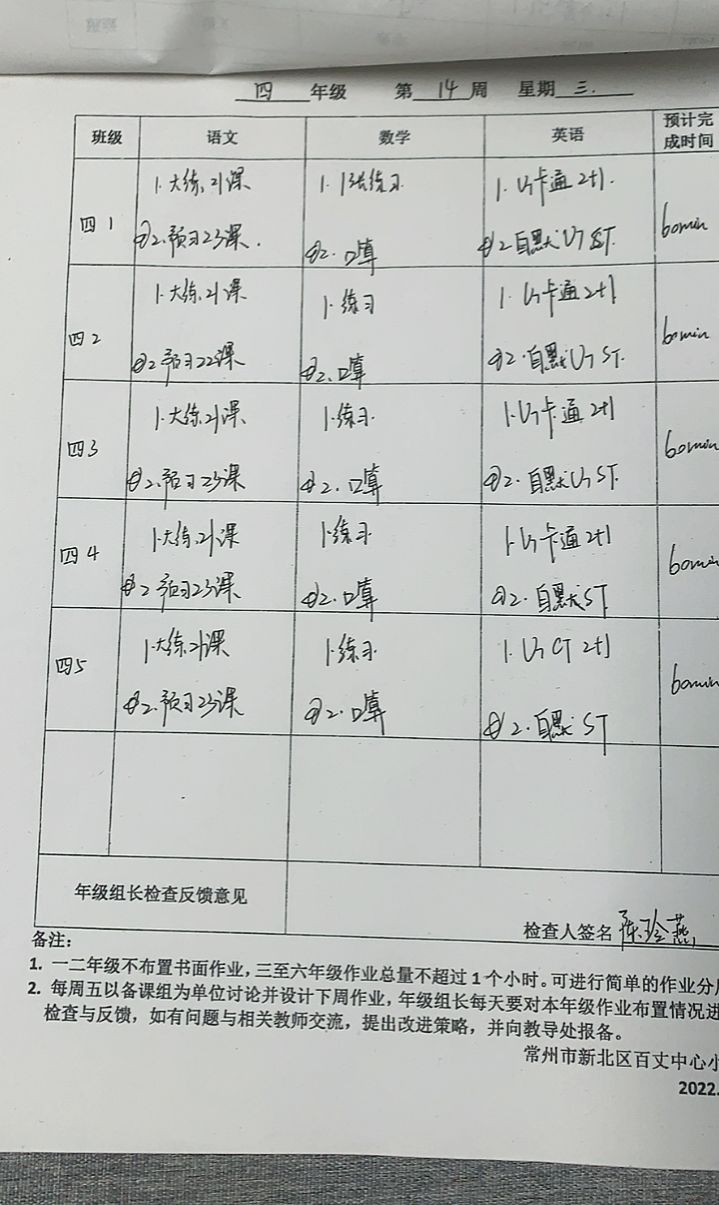 四 年级 第 14 周 星期 三.
班级 语文 数学 英语 预计完成时间
四1 1.大练.21课 1. 1张练习. 1. U7卡通 2+1. 60min
②2.预习23课. ②2.口算 ②2自默 U7 ST.
四2 1.大练.21课 1.练习 1. U7卡通 2+1 60min
②2预习22课 ②2.口算 ②2.自默 U7 ST.
四3 1.大练.21课 1.练习. 1.U7卡通 2+1 60min
②2.预习23课 ②2.口算 ②2.自默 U7 ST.
四4 1.大练.21课 1.练习. 1.U7卡通 2+1 60min
②2预习23课 ②2.口算 ②2.自默ST
四5 1.大练.21课 1.练习. 1. U7 CT 2+1 60min
②2.预习23课 ②2.口算 ②2.自默 ST
年级组长检查反馈意见
检查人签名 陈玲燕
备注：
1. 一二年级不布置书面作业，三至六年级作业总量不超过1个小时。可进行简单的作业分
2. 每周五以备课组为单位讨论并设计下周作业，年级组长每天要对本年级作业布置情况进
检查与反馈，如有问题与相关教师交流，提出改进策略，并向教导处报备。
常州市新北区百丈中心小
2022.